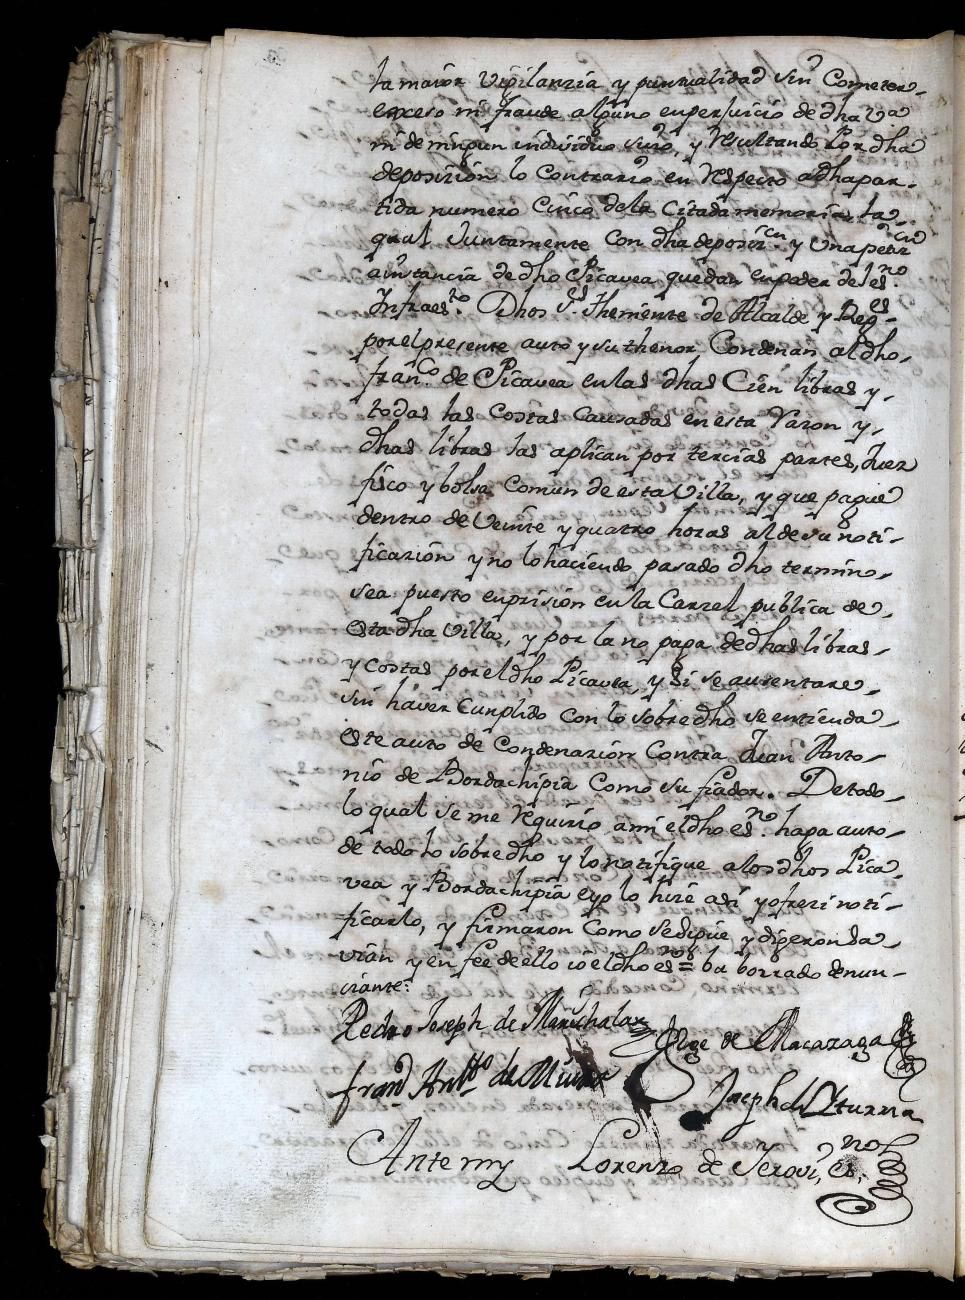 la maior Vigilanzia y puntualidad sin Cometer
exceso ni fraude alguno enperjuicio de dha Va
ni de ningun individuo suio, y Resultando Por dha
deposizion lo Contrario en Respecto adhapar-
tida numero Cinco dela Citada memoria, la
qual Juntamente Con dha deposizcn y Una petizcn
ainstancia de dho Picavea quedan enpoder del esno
Infraesto. Dhos Ss. Theniente de Alcalde y Reges
porelpresente auto y su thenor Condenan al dho
franco. de Picavea enlas dhas Cien libras y
todas las Costas Causadas en esta Razon y
dhas libras las aplican por tercias partes, Juez
fisco y bolsa Comun de esta Villa, y que pague
dentro de Veinte y quatro horas al de su noti-
ficazion y no lo haciendo pasado dho termino
sea puesto enprision en la Carzel publica de
esta dha Villa, y por la no paga de dhas libras
y costas por el dho Picavea, y si se ausentare
sin haver Cunplido Con lo sobre dho se entienda
este auto de Condenazion Contra Juan Anto-
nio de Bordachipia Como su fiador. De todo
lo qual se me Requirio ami el dho esno. haga auto
de todo lo sobre dho y lo notifique alos dhos Pica
vea y Bordachipia eyo lo hize asi y ofrezi noti-
ficarlo, y firmaron Como sedigue y digeron sa
vian y en fee de ello io el dho esno = ba borrado denun-
ciante.
Pedro Joseph de Marichalar
Jorge de Macazaga
franco Antto de
Joseph de Yturria
Ante my Lorenzo de Terovi, esno.